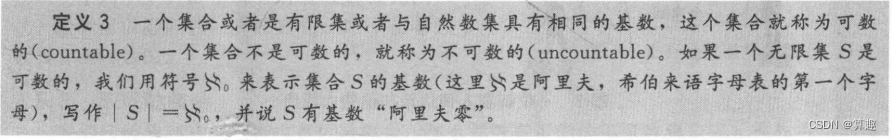 定义3 一个集合或者是有限集或者与自然数集具有相同的基数，这个集合就称为可数
的(countable)。一个集合不是可数的，就称为不可数的(uncountable)。如果一个无限集 S 是
可数的，我们用符号ℵ₀来表示集合 S 的基数(这里ℵ是阿里夫，希伯来语字母表的第一个字
母)，写作 | S | = ℵ₀，并说 S 有基数“阿里夫零”。
CSDN @算趣